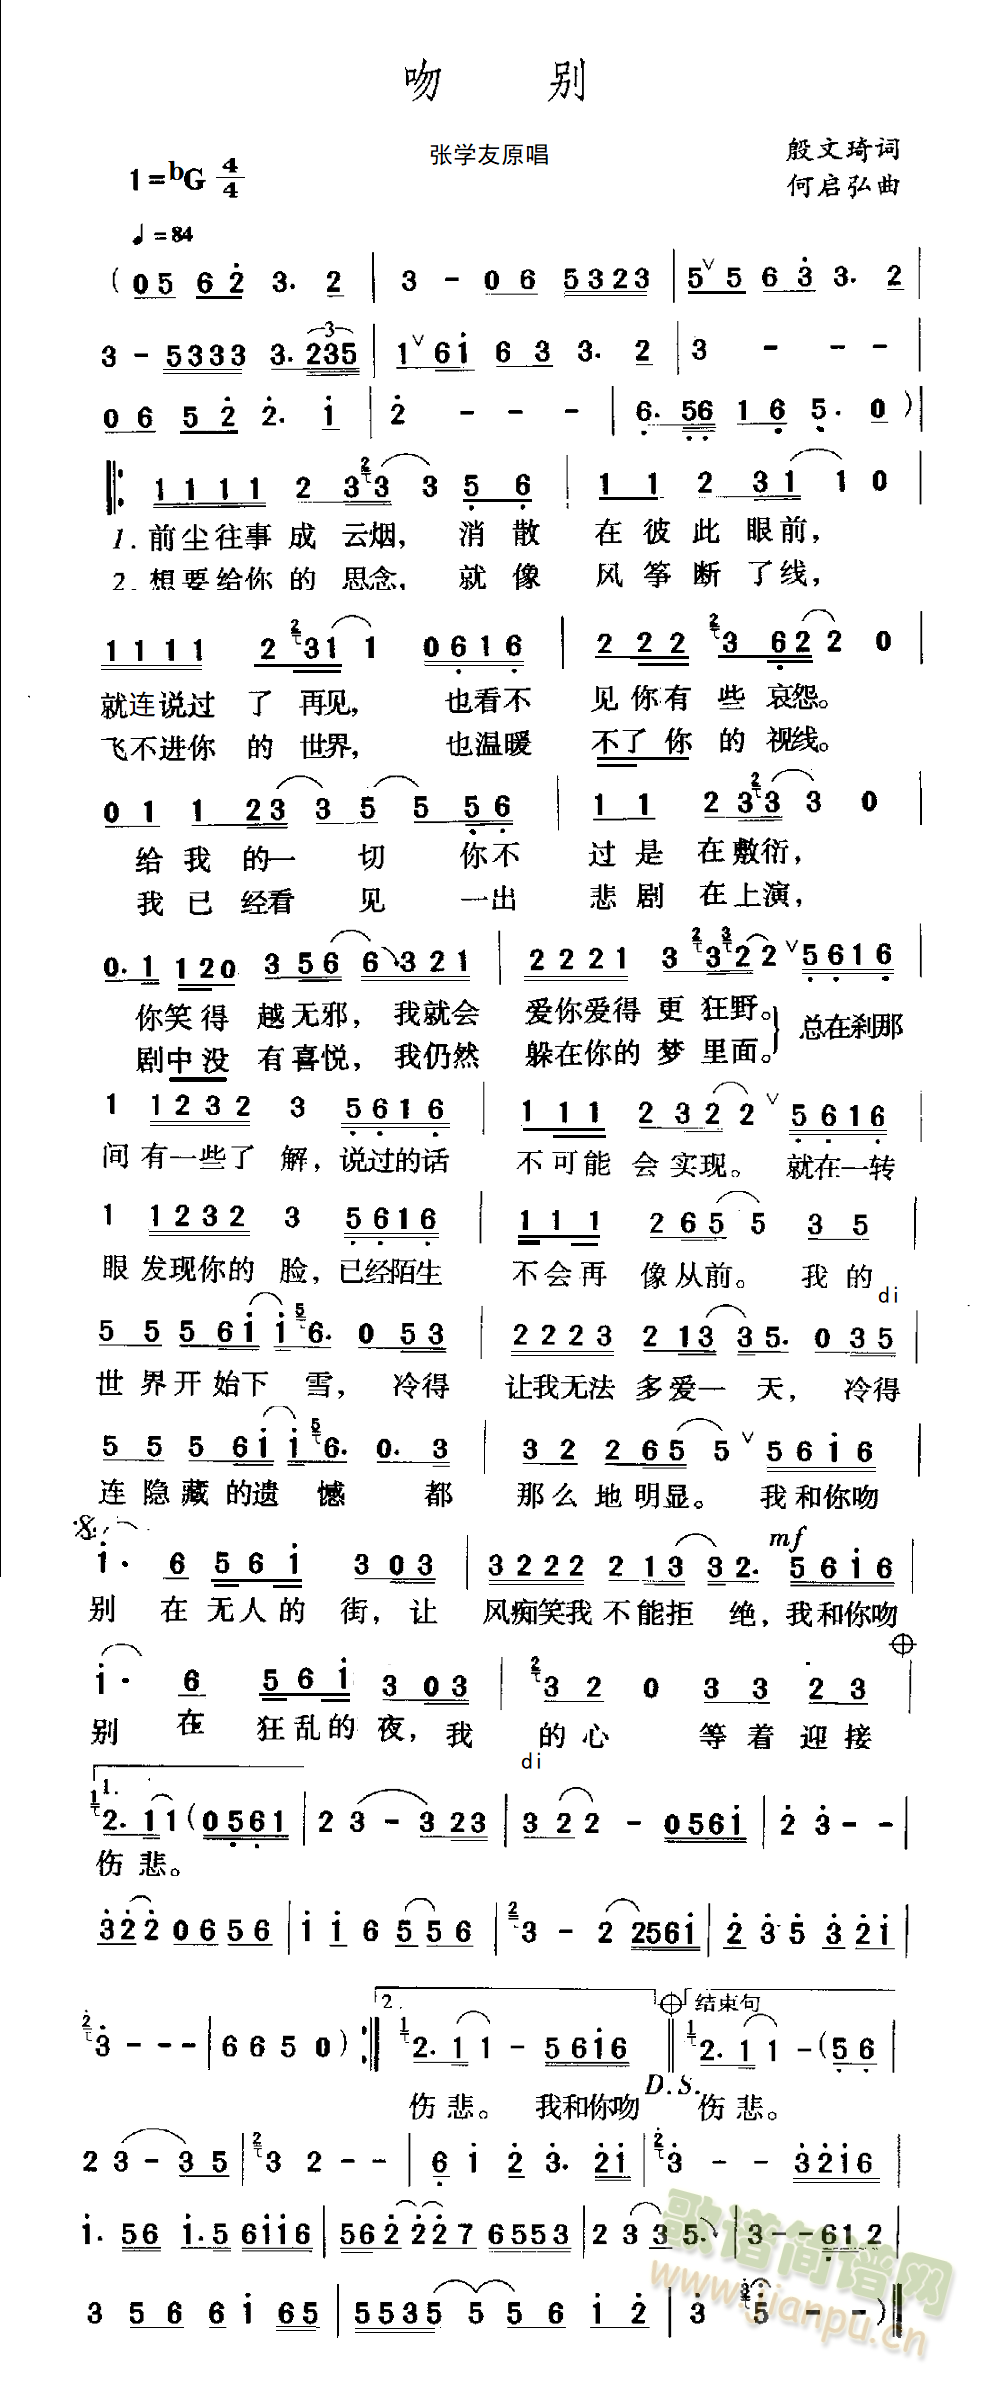 吻 别
张学友原唱
殷文琦词
何启弘曲
1=bG 4/4
♩=84
(05 62 3. 2 | 3 - 06 5323 | 5∨5 63 3. 2 |
3 - 5333 3.235 | 1∨61 63 3. 2 | 3 - - - |
06 52 2. 1 | 2 - - - | 6. 56 16 5. 0 ) |
1111 2 33 3 5 6 | 1 1 2 31 1 0
1.前尘往事成云烟, 消散在彼此眼前,
2.想要给你的思念, 就像风筝断了线,
1111 2 31 1 0616 | 2 22 3 62 2 0 |
就连说过了再见, 也看不见你有些哀怨。
飞不进你的世界, 也温暖不了你的视线。
01 1 23 3 5 5 56 | 1 1 2 33 3 0 |
给我的一切 你不过是在敷衍,
我已经看见 一出悲剧在上演,
0.1 120 356 6 321 | 2221 3 322 ∨5616 |
你笑得越无邪, 我就会爱你爱得更狂野。 总在刹那
剧中没有喜悦, 我仍然躲在你的梦里面。
1 1232 3 5616 | 1 11 2 32 2 ∨5616 |
间有一些了解, 说过的话不可能会实现。 就在一转
1 1232 3 5616 | 1 1 1 265 5 3 5 |
眼发现你的脸, 已经陌生不会再像从前。 我的
di
5 5 561 1 6. 0 53 | 2223 2 13 35. 0 35 |
世界开始下雪, 冷得让我无法多爱一天, 冷得
5 5 5 61 1 6. 0. 3 | 3 2 265 5 ∨ 5616 |
连隐藏的遗憾 都那么地明显。 我和你吻
mf
1. 6 561 3 03 | 3222 2 13 32. 5616 |
别在无人的街, 让风痴笑我不能拒绝, 我和你吻
1. 6 561 3 03 | 3 2 0 3 3 2 3 |
别在狂乱的夜, 我的心 等着迎接
di
1.
2. 11(0561 | 2 3 - 3 23 | 3 22 - 0561 | 2 3 - - |
伤悲。
322 06 56 | 1 1 6 5 5 6 | 3 - 2 2561 | 2 3 5 3 21 |
2. 结束句
3 - - - | 6 6 5 0 ) :‖ 2. 1 1 - 5616 ‖ 2. 1 1 - (56 |
D.S.
伤悲。 我和你吻 伤悲。
2 3 - 3 5 | 3 2 - - | 6 1 2 3. 21 | 3 - - 3216 |
1. 56 1.5 6116 | 562 227 6553 | 2 33 5. | 3--612 |
3 56 61 65 | 5535 5 56 1 2 | 3 5 - - )‖
歌谱简谱网
www.jianpu.cn